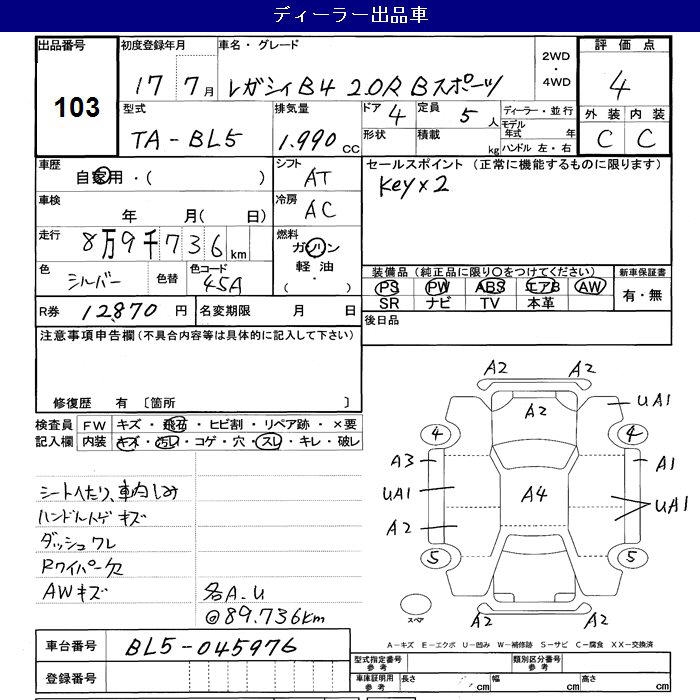 ディーラー出品車
出品番号 103
初度登録年月 17 7月
車名・グレード レガシィB4 2.0R Bスポーツ
2WD・4WD
評価点 4
外装 内装
C C
型式 TA-BL5
排気量 1.990 CC
ドア 4
定員 5人
形状 積載 kg
ディーラー・並行
モデル年式 年
ハンドル 左・右
車歴 自家用・( )
シフト AT
セールスポイント (正常に機能するものに限ります)
Key×2
車検 年 月( 日)
冷房 AC
走行 8万9千736km
燃料 ガソリン
軽油
( ・ )
色 シルバー 色替 色コード 45A
装備品(純正品に限り〇をつけてください)
PS PW ABS エアB AW
SR ナビ TV 本革
新車保証書
有・無
R券 12870円
名変期限 月 日
後日品
注意事項申告欄(不具合内容等は具体的に記入して下さい)
修復歴 有 〔箇所 〕
検査員記入欄
FW キズ・飛石・ヒビ割・リペア跡・×要
内装 キズ・汚レ・コゲ・穴・スレ・キレ・破レ
シートへたり、車内しみ
ハンドルハゲキズ
ダッシュワレ
Rワイパー欠
AWキズ
各A.U
@89.736km
A2 A2
A2
UA1
4 4
A3 A1
UA1 A4 UA1
A2
5 5
スペア
A2 A2
A-キズ E-エクボ U-凹み W-補修跡 S-サビ C-腐食 XX-交換済
車台番号 BL5-045976
登録番号
型式指定番号 参考
類別区分番号 参考
車庫証明用 参考 長さ cm 幅 cm 高さ cm